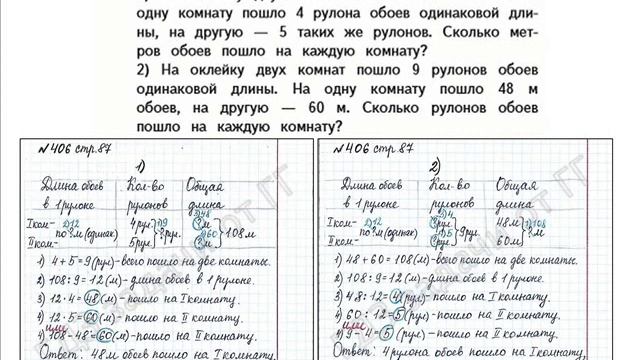 одну комнату пошло 4 рулона обоев одинаковой дли-
ны, на другую — 5 таких же рулонов. Сколько мет-
ров обоев пошло на каждую комнату?
2) На оклейку двух комнат пошло 9 рулонов обоев
одинаковой длины. На одну комнату пошло 48 м
обоев, на другую — 60 м. Сколько рулонов обоев
пошло на каждую комнату?
№406 стр.87
1)
Длина обоев Кол-во Общая
в 1 рулоне рулонов длина
Iком- 12 4 рул. 9 48 м
по ? м (одинак) ? рул. 108 м
IIком- 5 рул. 60 м
1) 4+5=9(рул)-всего пошло на две комнаты.
2) 108:9=12(м)-длина обоев в 1 рулоне.
3) 12·4=48(м)-пошло на I комнату.
4) 12·5=60(м)-пошло на II комнату.
или
4) 108-48=60(м)-пошло на II комнату.
Ответ: 48м обоев пошло на I комнату,
№406 стр.87
2)
Длина обоев Кол-во Общая
в 1 рулоне рулонов длина
Iком- 12 4 ? рул. 48м 108
по ? м (одинак) 9рул. ? м
IIком- 5 ? рул. 60м
1) 48+60=108(м)-всего пошло обоев.
2) 108:9=12(м)-длина обоев в 1 рулоне.
3) 48:12=4(рул)-пошло на I комнату.
4) 60:12=5(рул)-пошло на II комнату.
или
4) 9-4=5(рул)-пошло на II комнату.
Ответ: 4 рулона обоев пошло на I комнату,